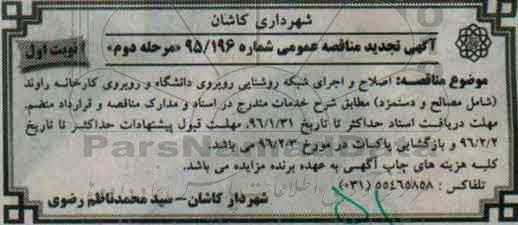 شهرداری کاشان
آگهی تجدید مناقصه عمومی شماره ۹۵/۱۹۶ «مرحله دوم»
نوبت اول
موضوع مناقصه: اصلاح و اجرای شبکه روشنایی روبروی دانشگاه و روبروی کارخانه راوند
(شامل مصالح و دستمزد) مطابق شرح خدمات مندرج در اسناد و مدارک مناقصه و قرارداد منضم.
مهلت دریافت اسناد حداکثر تا تاریخ ۹۶/۱/۳۱، مهلت قبول پیشنهادات حداکثر تا تاریخ
۹۶/۲/۲ و بازگشایی پاکات در مورخ ۹۶/۲/۳ می باشد.
کلیه هزینه های چاپ آگهی به عهده برنده مزایده می باشد.
تلفاکس: ۵۵۴۶۵۸۵۸ (۰۳۱)
شهردار کاشان – سید محمدناظم رضوی
ParsNamadData